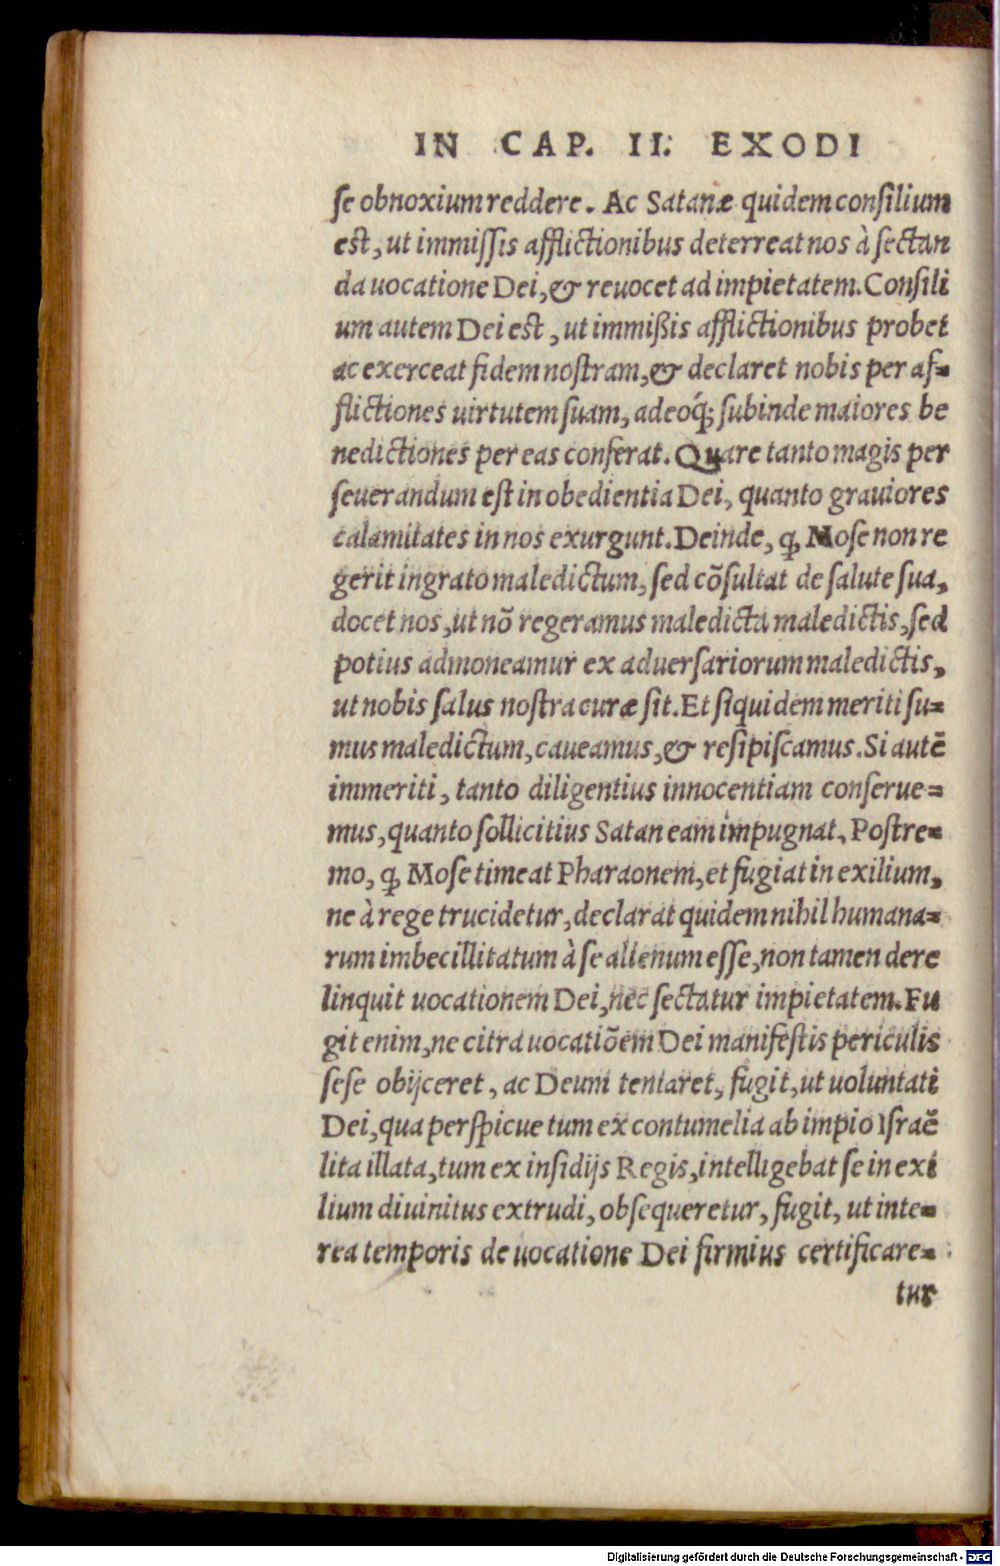 IN CAP. II. EXODI
se obnoxium reddere. Ac Satanæ quidem consilium
est, ut immissis afflictionibus deterreat nos à sectan
da uocatione Dei, & reuocet ad impietatem. Consili
um autem Dei est, ut immißis afflictionibus probet
ac exerceat fidem nostram, & declaret nobis per af=
flictiones uirtutem suam, adeoq́; subinde maiores be
nedictiones per eas conferat. Quare tanto magis per
seuerandum est in obedientia Dei, quanto grauiores
calamitates in nos exurgunt. Deinde, ꝙ Mose non re
gerit ingrato maledictum, sed cõsultat de salute sua,
docet nos, ut nõ regeramus maledicta maledictis, sed
potius admoneamur ex aduersariorum maledictis,
ut nobis salus nostra curæ sit. Et siquidem meriti su=
mus maledictum, caueamus, & resipiscamus. Si autē
immeriti, tanto diligentius innocentiam conserue=
mus, quanto sollicitius Satan eam impugnat. Postre=
mo, ꝙ Mose timeat Pharaonem, et fugiat in exilium,
ne à rege trucidetur, declarat quidem nihil humana=
rum imbecillitatum à se alienum esse, non tamen dere
linquit uocationem Dei, nec sectatur impietatem. Fu
git enim, ne citra uocatiõem Dei manifestis periculis
sese obijceret, ac Deum tentaret, fugit, ut uoluntati
Dei, qua perspicue tum ex contumelia ab impio Israē
lita illata, tum ex insidijs Regis, intelligebat se in exi
lium diuinitus extrudi, obsequeretur, fugit, ut inte=
rea temporis de uocatione Dei firmius certificare=
tur
Digitalisierung gefördert durch die Deutsche Forschungsgemeinschaft - DFG